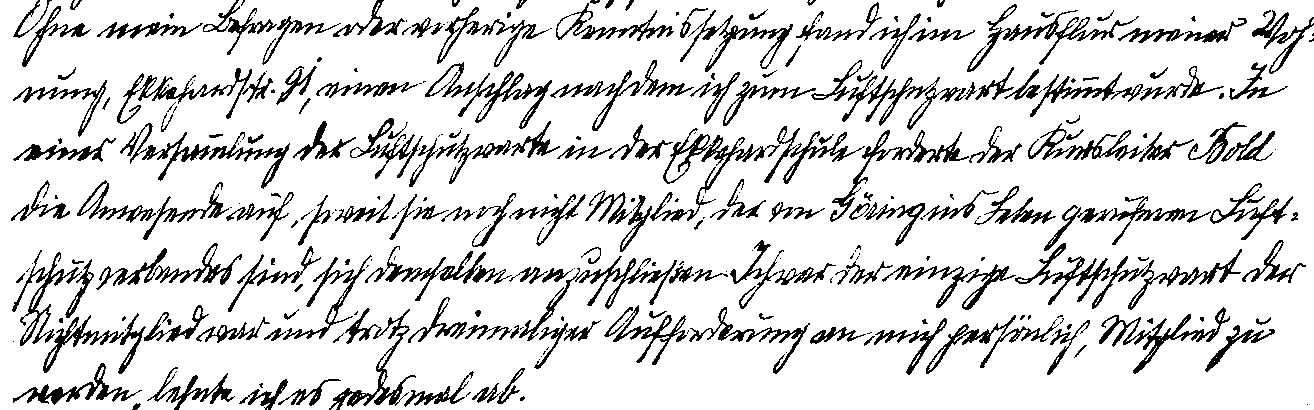 Ohne mein Befragen oder vorherige Kenntnissetzung fand ich im Hausflur meiner Woh-
nung, Ekkehardstr. 91, einen Anschlag nach dem ich zum Luftschutzwart bestimmt wurde. In
einer Versammlung der Luftschutzwarte in der Ekkehardschule forderte der Kursleiter Bold
die Anwesende auf, soweit sie noch nicht Mitglied, der von Göring ins Leben gerufenen Luft-
schutzverbandes sind, sich demselben anzuschließen. Ich war der einzige Luftschutzwart der
Nichtmitglied war und trotz dreimaliger Aufforderung an mich persönlich, Mitglied zu
werden, lehnte ich es jedesmal ab.